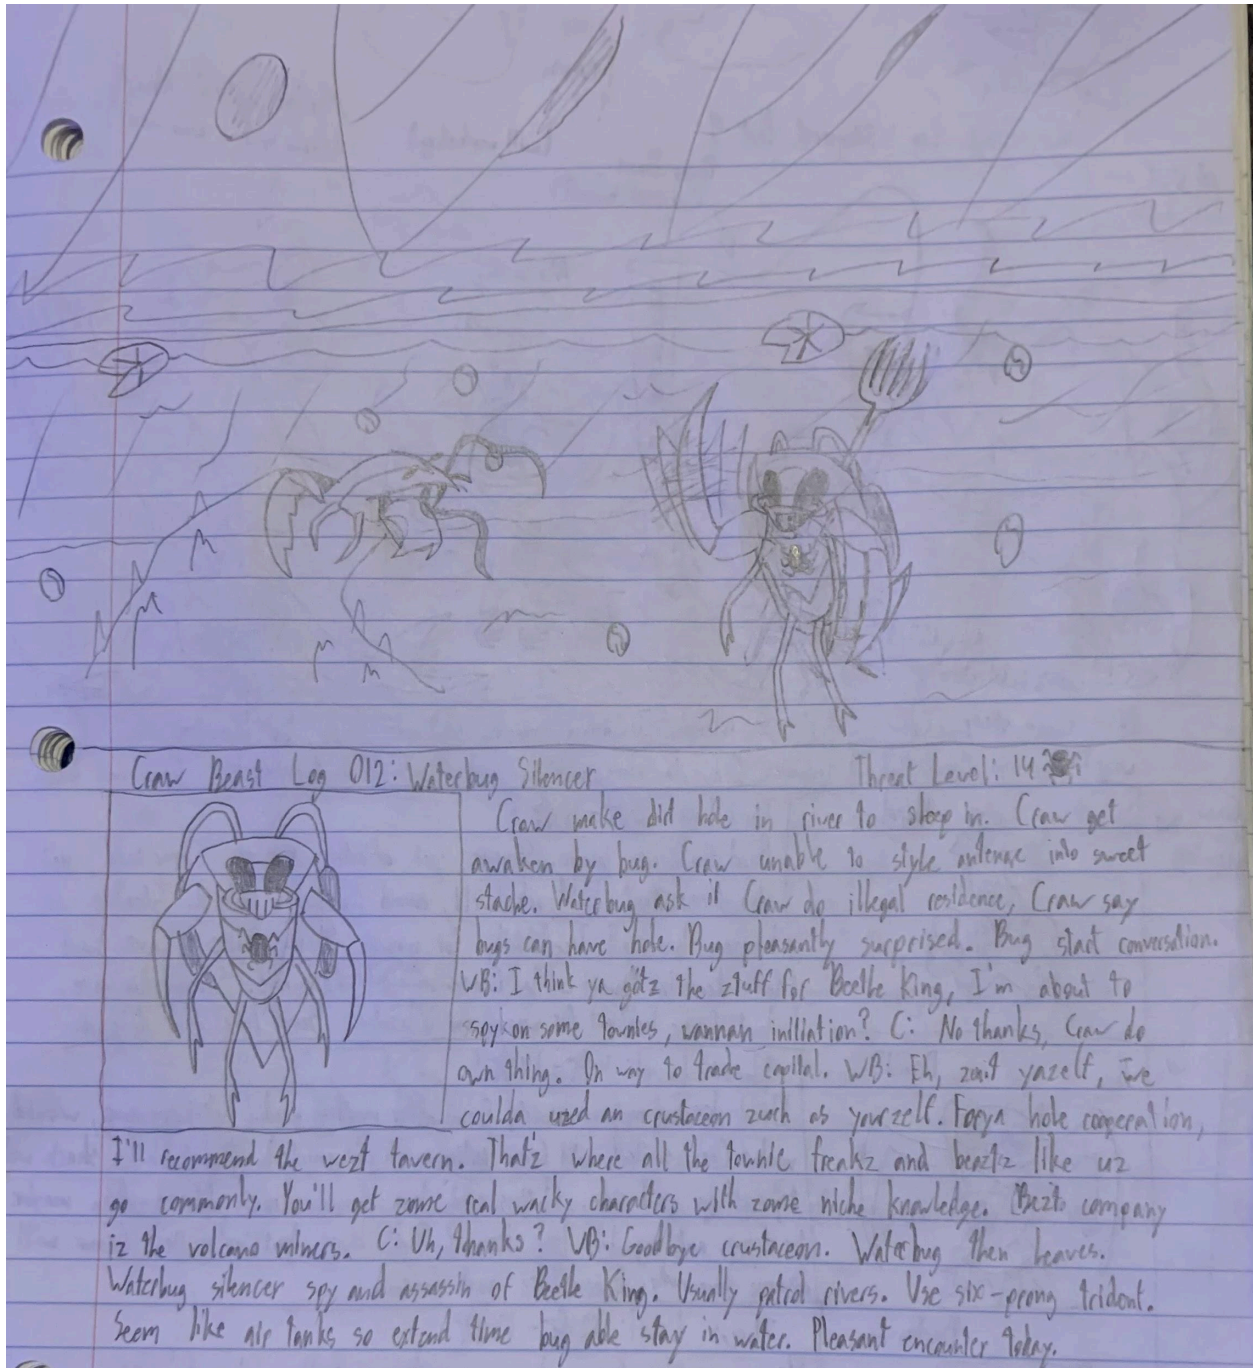 Craw Beast Log 012: Waterbug Silencer
Threat Level: 14
Craw make did hole in river to sleep in. Craw get
awaken by bug. Craw unable to style antenae into sweet
stache. Waterbug ask if Craw do illegal residence, Craw say
bugs can have hole. Bug pleasantly surprised. Bug start conversation.
WB: I think ya gotz the ztuff for Beetle King, I'm about to
spy on some townies, wannan initiation? C: No thanks, Craw do
own thing. On way to trade capital. WB: Eh, zuit yazelf, we
coulda uzed an crustaceon zuch as yourzelf. Forya hole cooperation,
I'll recommend the wezt tavern. That'z where all the townie freakz and beaztz like uz
go commonly. You'll get zome real wacky characters with zome niche knowledge. Bezt company
iz the volcano miners. C: Uh, thanks? WB: Goodbye crustaceon. Waterbug then leaves.
Waterbug silencer spy and assassin of Beetle King. Usually patrol rivers. Use six-prong trident.
Seem like air tanks so extend time bug able stay in water. Pleasant encounter today.